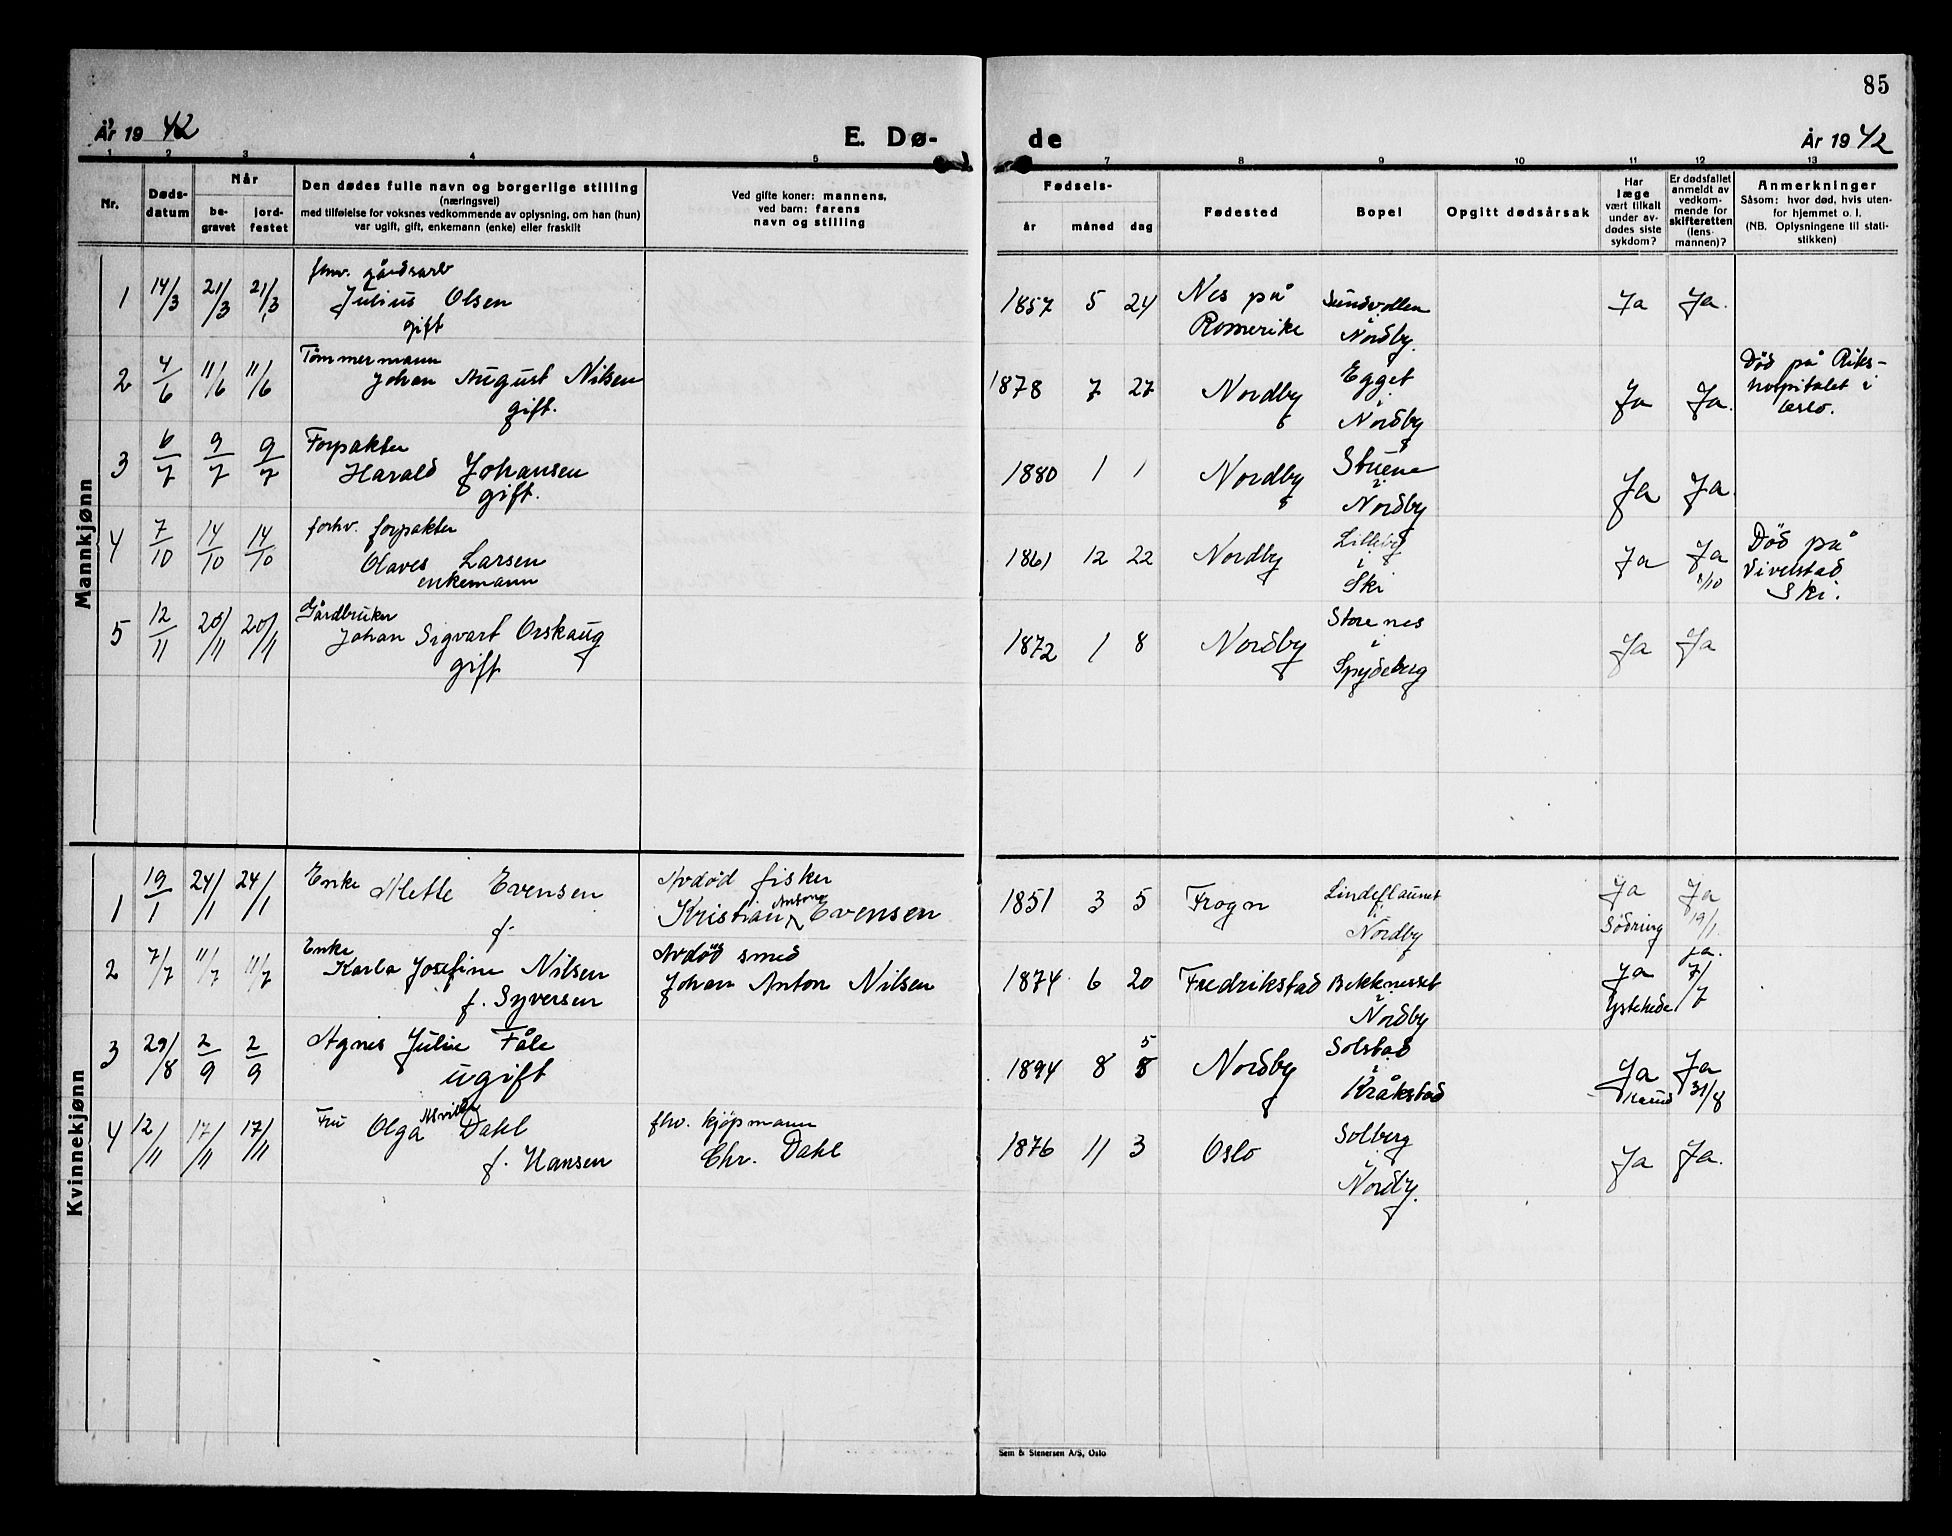 85
År 1942
E. Dø-
de
År 1942
1 2 3 4 5
7 8 9 10 11 12 13
Nr.
Døds-
datum
Når
be-
gravet
jord-
festet
Den dødes fulle navn og borgerlige stilling
(næringsvei)
med tilføielse for voksnes vedkommende av oplysning, om han (hun)
var ugift, gift, enkemann (enke) eller fraskilt
Ved gifte koner: mannens,
ved barn: farens
navn og stilling
Fødsels-
år måned dag
Fødested
Bopel
Opgitt dødsårsak
Har
læge
vært tilkalt
under av-
dødes siste
sykdom?
Er dødsfallet
anmeldt av
vedkom-
mende for
skifteretten
(lens-
mannen)?
Anmerkninger
Såsom: hvor død, hvis uten-
for hjemmet o. l.
(NB. Oplysningene til stati-
stikken)
Mannkjønn
1 14/3 21/3 21/3
fhv. gårdsarb
Julius Olsen
gift
1857 5 24
Nes på
Romerike
Sundvollen
Nordby.
Ja Ja.
2 4/6 11/6 11/6
Tømmermann
Johan August Nilsen
gift.
1878 7 27 Nordby
Egget
i
Nordby
Ja Ja.
Död på Riks-
hospitalet i
Oslo.
3 6/7 9/7 9/7
Forpakter
Harald Johansen
gift.
1880 1 1 Nordby
Stuene
i
Nordby
Ja Ja.
4 7/10 14/10 14/10
forhv. forpakter
Olaves Larsen
enkemann
1861 12 22 Nordby
i
Ski
Ja Ja
8/10
Död på
Ski.
5 12/11 20/11 20/11
Gårdbruker
Johan Sigvart Orskaug
gift
1872 1 8 Nordby
Store nes
i
Spydeberg
Ja Ja
Kvinnekjønn
1 19/1 24/1 24/1
Enke Mette Evensen
f.
Avdöd fisker
Kristian Anton Evensen
1851 3 5 Frogn
i
Nordby
Ja
Södring
Ja
19/1.
2 7/7 11/7 11/7
Enke
Karla Josefine Nilsen
f. Syversen
Avdöd smed
Johan Anton Nilsen
1874 6 20 Fredrikstad
Bekknesset
i
Nordby
Ja
Ystehede
ja.
7/7
3 29/8 2/9 2/9
Agnes Julie Fåle
ugift
1894 8 5 8 Nordby
Solstad
i
Kråkstad
Ja
Ja
31/8
4 12/11 17/11 17/11
Fru Olga Alvilde Dahl
f. Hansen
fhv. kjöpmann
Chr. Dahl
1876 11 3 Oslo
Solberg
i
Nordby.
Ja Ja.
Sem & Stenersen A/S, Oslo